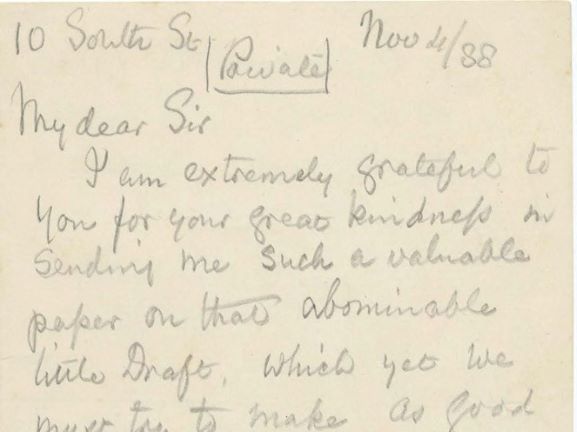 10 South St [Private] Nov 4/88
My dear Sir
I am extremely grateful to
you for your great kindness in
sending me such a valuable
paper on that abominable
little Draft, which yet we
must try to make as good